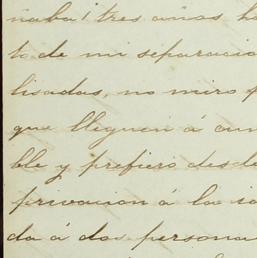 ñaba! tres años ha
to de mi separacio
lisadas, no miro p
que lleguen á cum
ble y prefiero desde
privacion á la so
da á dos persona